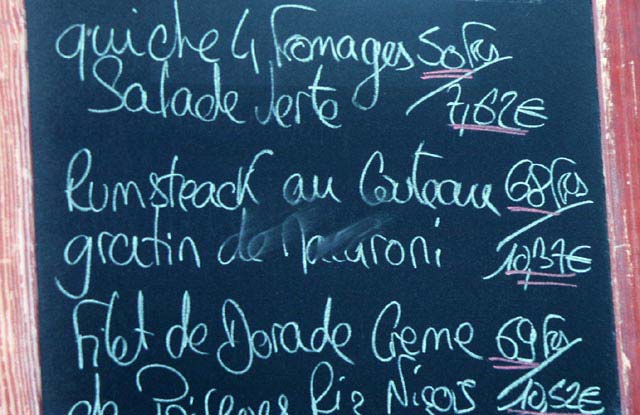 quiche 4 Fromages 50Frs
Salade Verte 7,62€
Rumsteack au Couteau 68Frs
gratin de Macaroni 10,37€
Filet de Dorade Crème 69Frs
de Poivrons Riz Niçois 10,52€